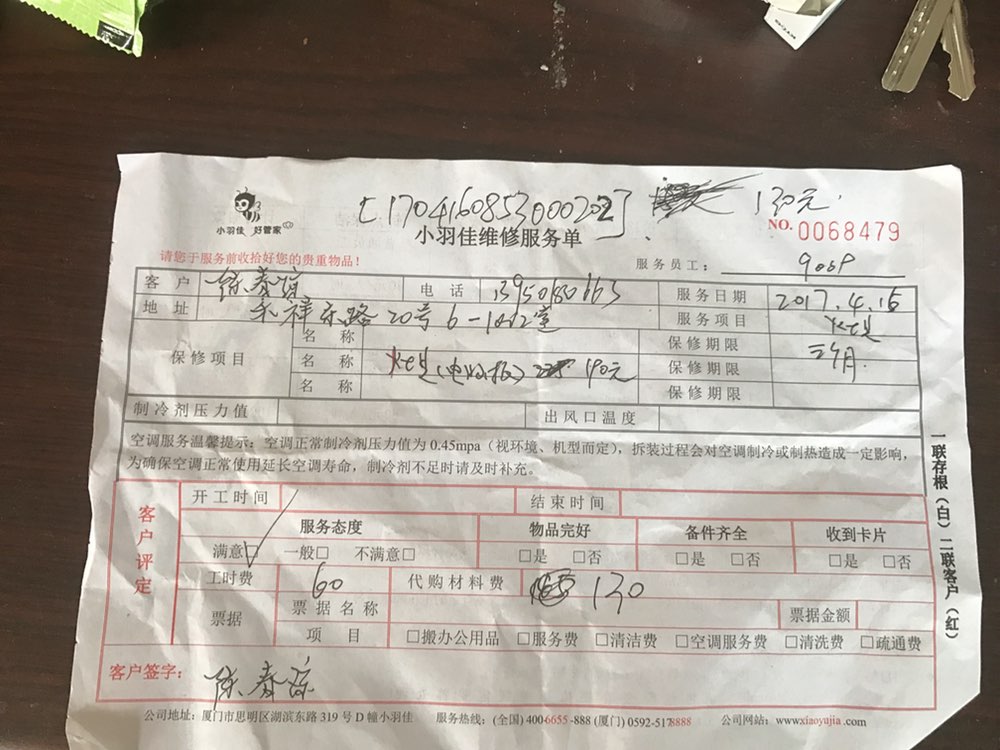 [170416085300022] 130元
小羽佳 好管家
小羽佳维修服务单
NO. 0068479
请您于服务前收拾好您的贵重物品！
服务员工：
客户 陈春谊 电话 13950180663 服务日期 2017.4.16
地址 禾祥东路20号6-1002室 服务项目 灶具
保修项目 名称 保修期限 三个月
名称 灶具(电脉板) 190元 保修期限
名称 保修期限
制冷剂压力值 出风口温度
空调服务温馨提示：空调正常制冷剂压力值为 0.45mpa（视环境、机型而定），拆装过程会对空调制冷或制热造成一定影响，
为确保空调正常使用延长空调寿命，制冷剂不足时请及时补充。
一联存根（白）二联客户（红）
客户评定
开工时间 结束时间
服务态度 物品完好 备件齐全 收到卡片
满意□ 一般□ 不满意□ □是 □否 □是 □否 □是 □否
工时费 60 代购材料费 130
票据 票据名称 票据金额
项目 □搬办公用品 □服务费 □清洁费 □空调服务费 □清洗费 □疏通费
客户签字： 陈春谊
公司地址：厦门市思明区湖滨东路 319 号 D 幢小羽佳 服务热线：(全国) 400-6655-888 (厦门) 0592-5178888 公司网站：www.xiaoyujia.com